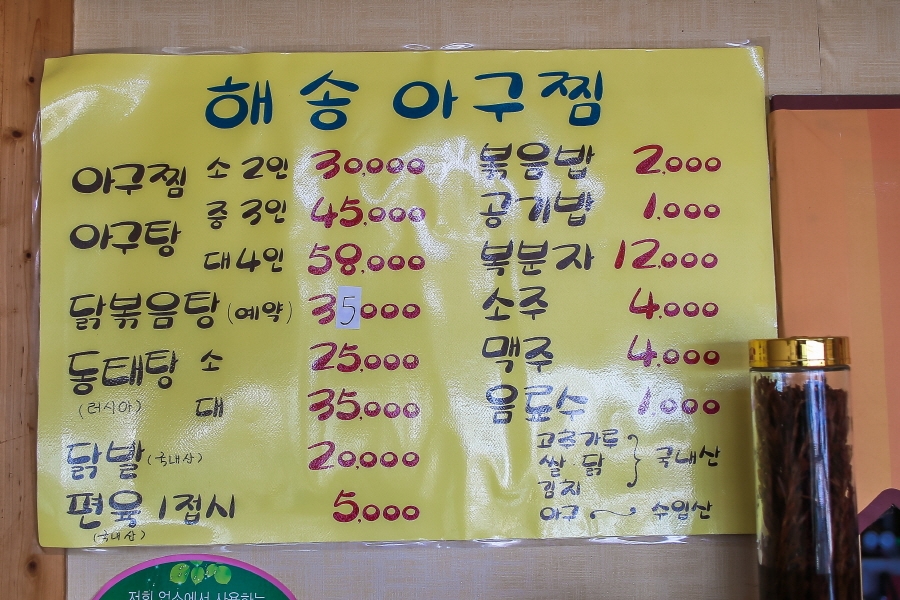 해송 아구찜
아구찜 소 2인 30.000
아구탕 중 3인 45.000
대 4인 58.000
닭볶음탕 (예약) 35000
동태탕 소 25.000
(러시아) 대 35.000
닭발 (국내산) 20.000
편육 1접시 5.000
(국내산)
볶음밥 2.000
공기밥 1.000
복분자 12.000
소주 4.000
맥주 4.000
음료수 1.000
고추가루
쌀·닭 } 국내산
김치
아구 ~ 수입산
저희 업소에서 사용하는